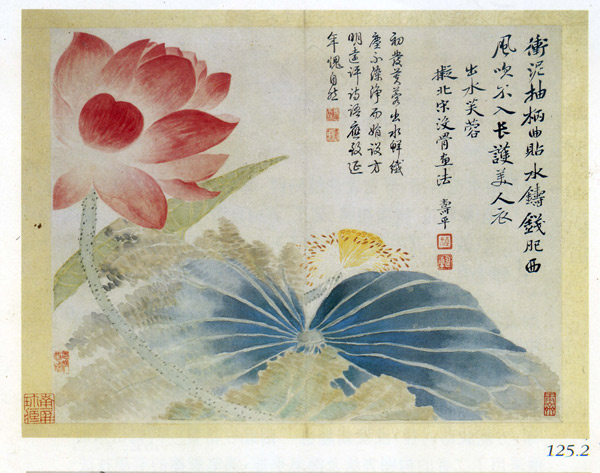 衝泥抽柄曲貼水鑄錢肥西
風吹不入長護美人衣
出水芙蓉
擬北宋没骨画法 壽平
初發芙蓉出水鮮纖
塵不染淨而娟設方
明遠評詩語應延
年愧自然
125.2